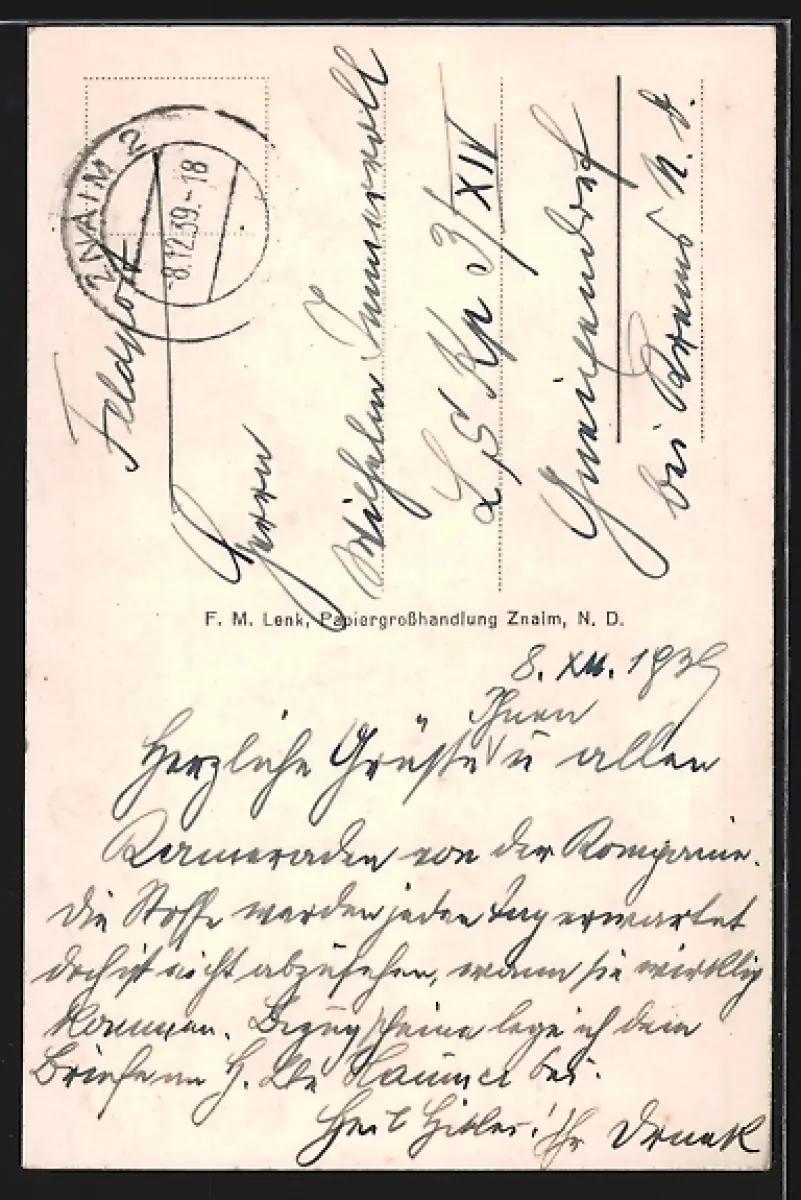 ZNAIM 2
8.12.39.-18
Feldpost
Herrn
Wilhelm Immervoll
LS Kp 3/XIV
Gneixendorf
bei Krems N. D.
F. M. Lenk, Papiergroßhandlung Znaim, N. D.
8. XII. 1939
Ihnen
Herzliche Grüsse u allen
Kameraden von der Kompanie.
Die Stoffe werden jeden Tag erwartet
doch ist nicht abzusehen, wann sie wirklich
kommen. Bezugscheine lege ich dem
Briefe an H. Lt. bei.
Heil Hitler! Ihr